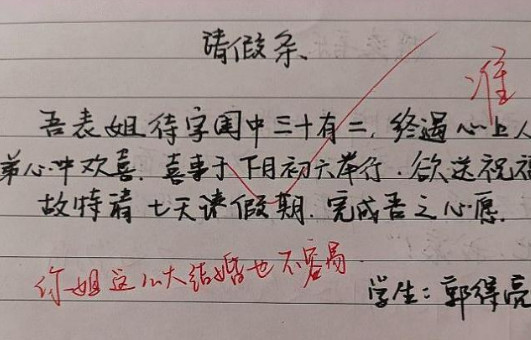 请假条
准
吾表姐待字闺中三十有二,终遇心上人
弟心中欢喜.喜事于下月初六举行.欲送祝福
故特请七天课假期.完成吾之心愿.
你姐这么大结婚也不容易
学生:郭得亮